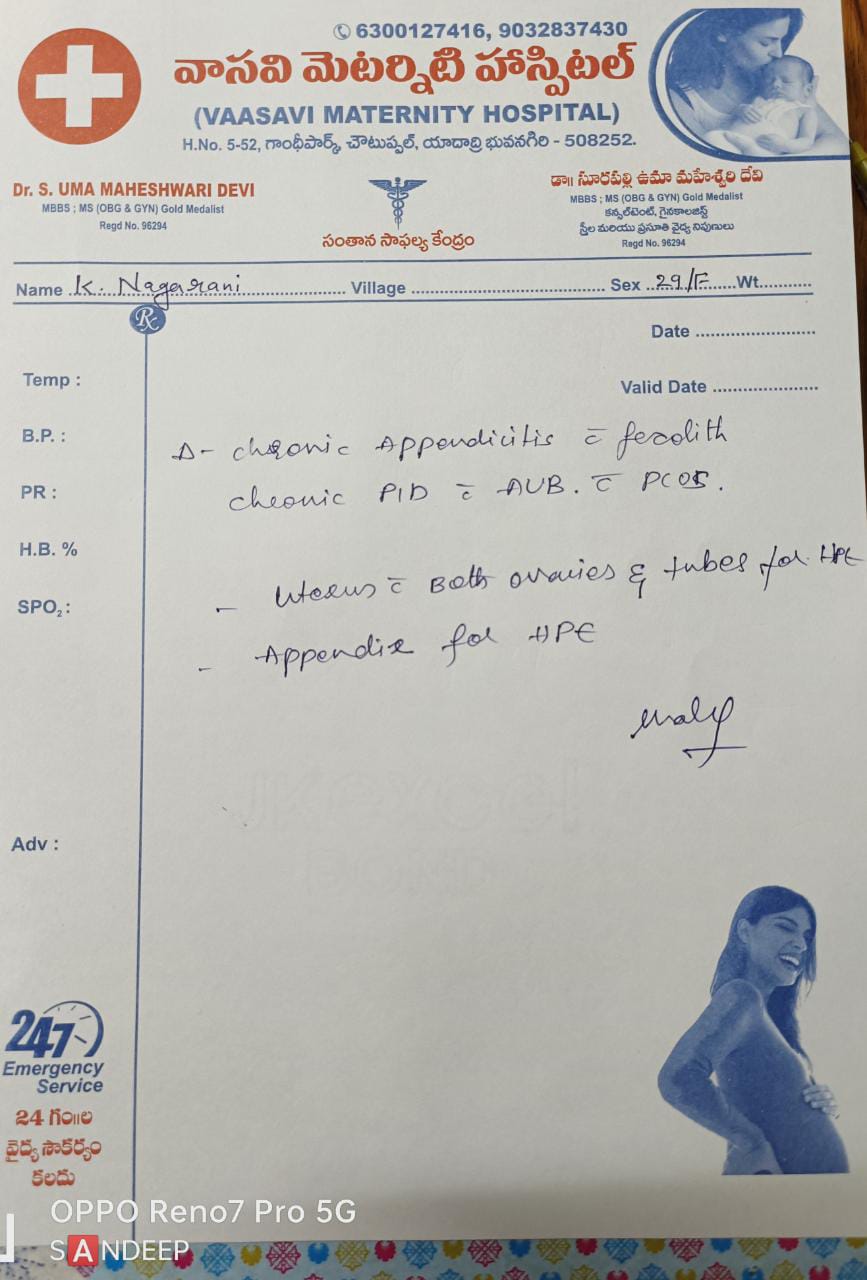 6300127416, 9032837430
వాసవి మెటర్నిటి హాస్పిటల్
(VAASAVI MATERNITY HOSPITAL)
H.No. 5-52, గాంధీపార్క్, చౌటుప్పల్, యాదాద్రి భువనగిరి - 508252.
Dr. S. UMA MAHESHWARI DEVI
MBBS ; MS (OBG & GYN) Gold Medalist
Regd No. 96294
సంతాన సాఫల్య కేంద్రం
డా॥ సూరపల్లి ఉమా మహేశ్వరి దేవి
MBBS ; MS (OBG & GYN) Gold Medalist
కన్సల్టెంట్, గైనకాలజిస్ట్
స్త్రీల మరియు ప్రసూతి వైద్య నిపుణులు
Regd No. 96294
Name K. Nagarani Village Sex 29/F Wt.
Rx
Date
Temp :
Valid Date
B.P. :
Δ- chronic Appendicitis c̄ fecolith
PR :
cheonic PID c̄ AUB. c̄ PCOS.
H.B. %
- Uterus c̄ Both ovaries & tubes for HPE
SPO₂ :
- Appendix for HPE
Adv :
247
Emergency
Service
24 గం॥ల
వైద్య సౌకర్యం
కలదు
OPPO Reno7 Pro 5G
SANDEEP